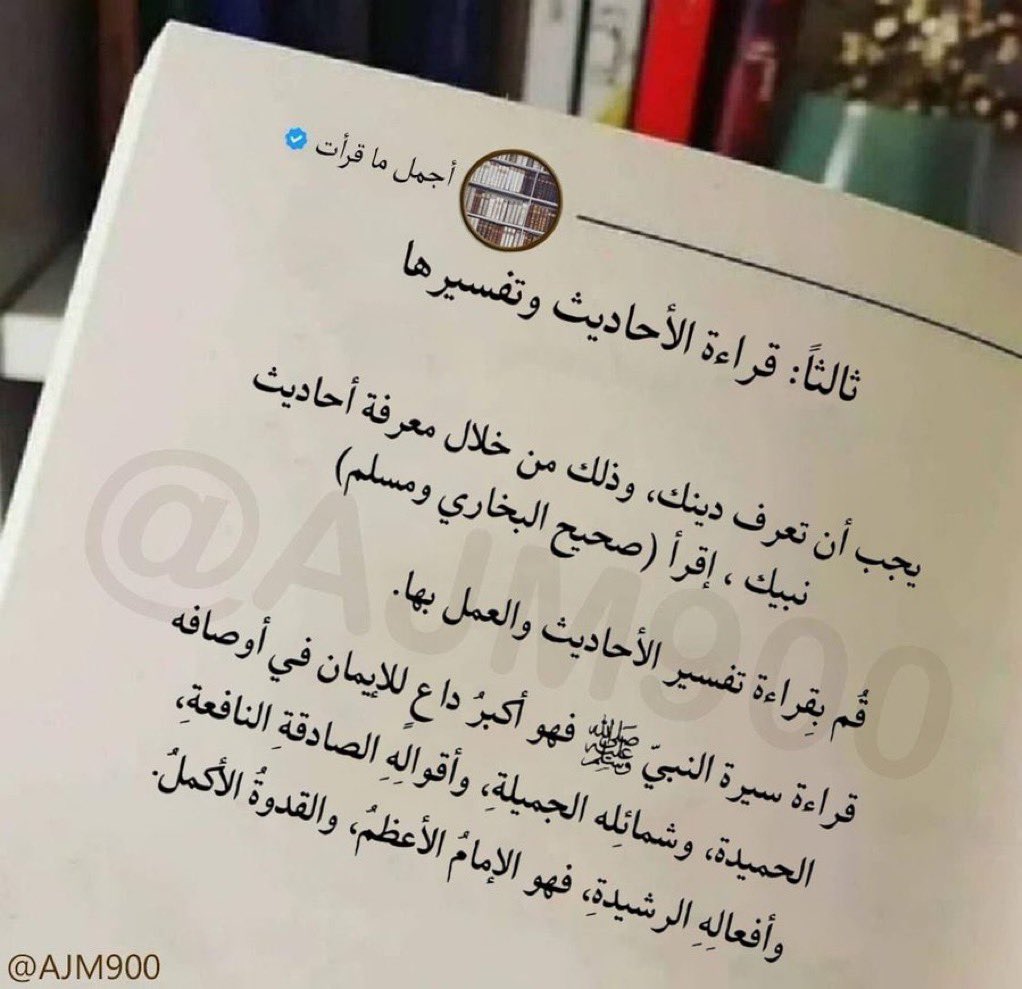 أجمل ما قرأت
ثالثاً: قراءة الأحاديث وتفسيرها
يجب أن تعرف دينك، وذلك من خلال معرفة أحاديث
نبيك ، إقرأ (صحيح البخاري ومسلم)
قُم بِقراءة تفسير الأحاديث والعمل بها.
قراءة سيرة النبيّ ﷺ فهو أكبرُ داعٍ للإيمان في أوصافه
الحميدة، وشمائلِه الجميلةِ، وأقوالهِ الصادقةِ النافعةِ،
وأفعالهِ الرشيدةِ، فهو الإمامُ الأعظمُ، والقدوةُ الأكملُ.
@AJM900
@AJM900